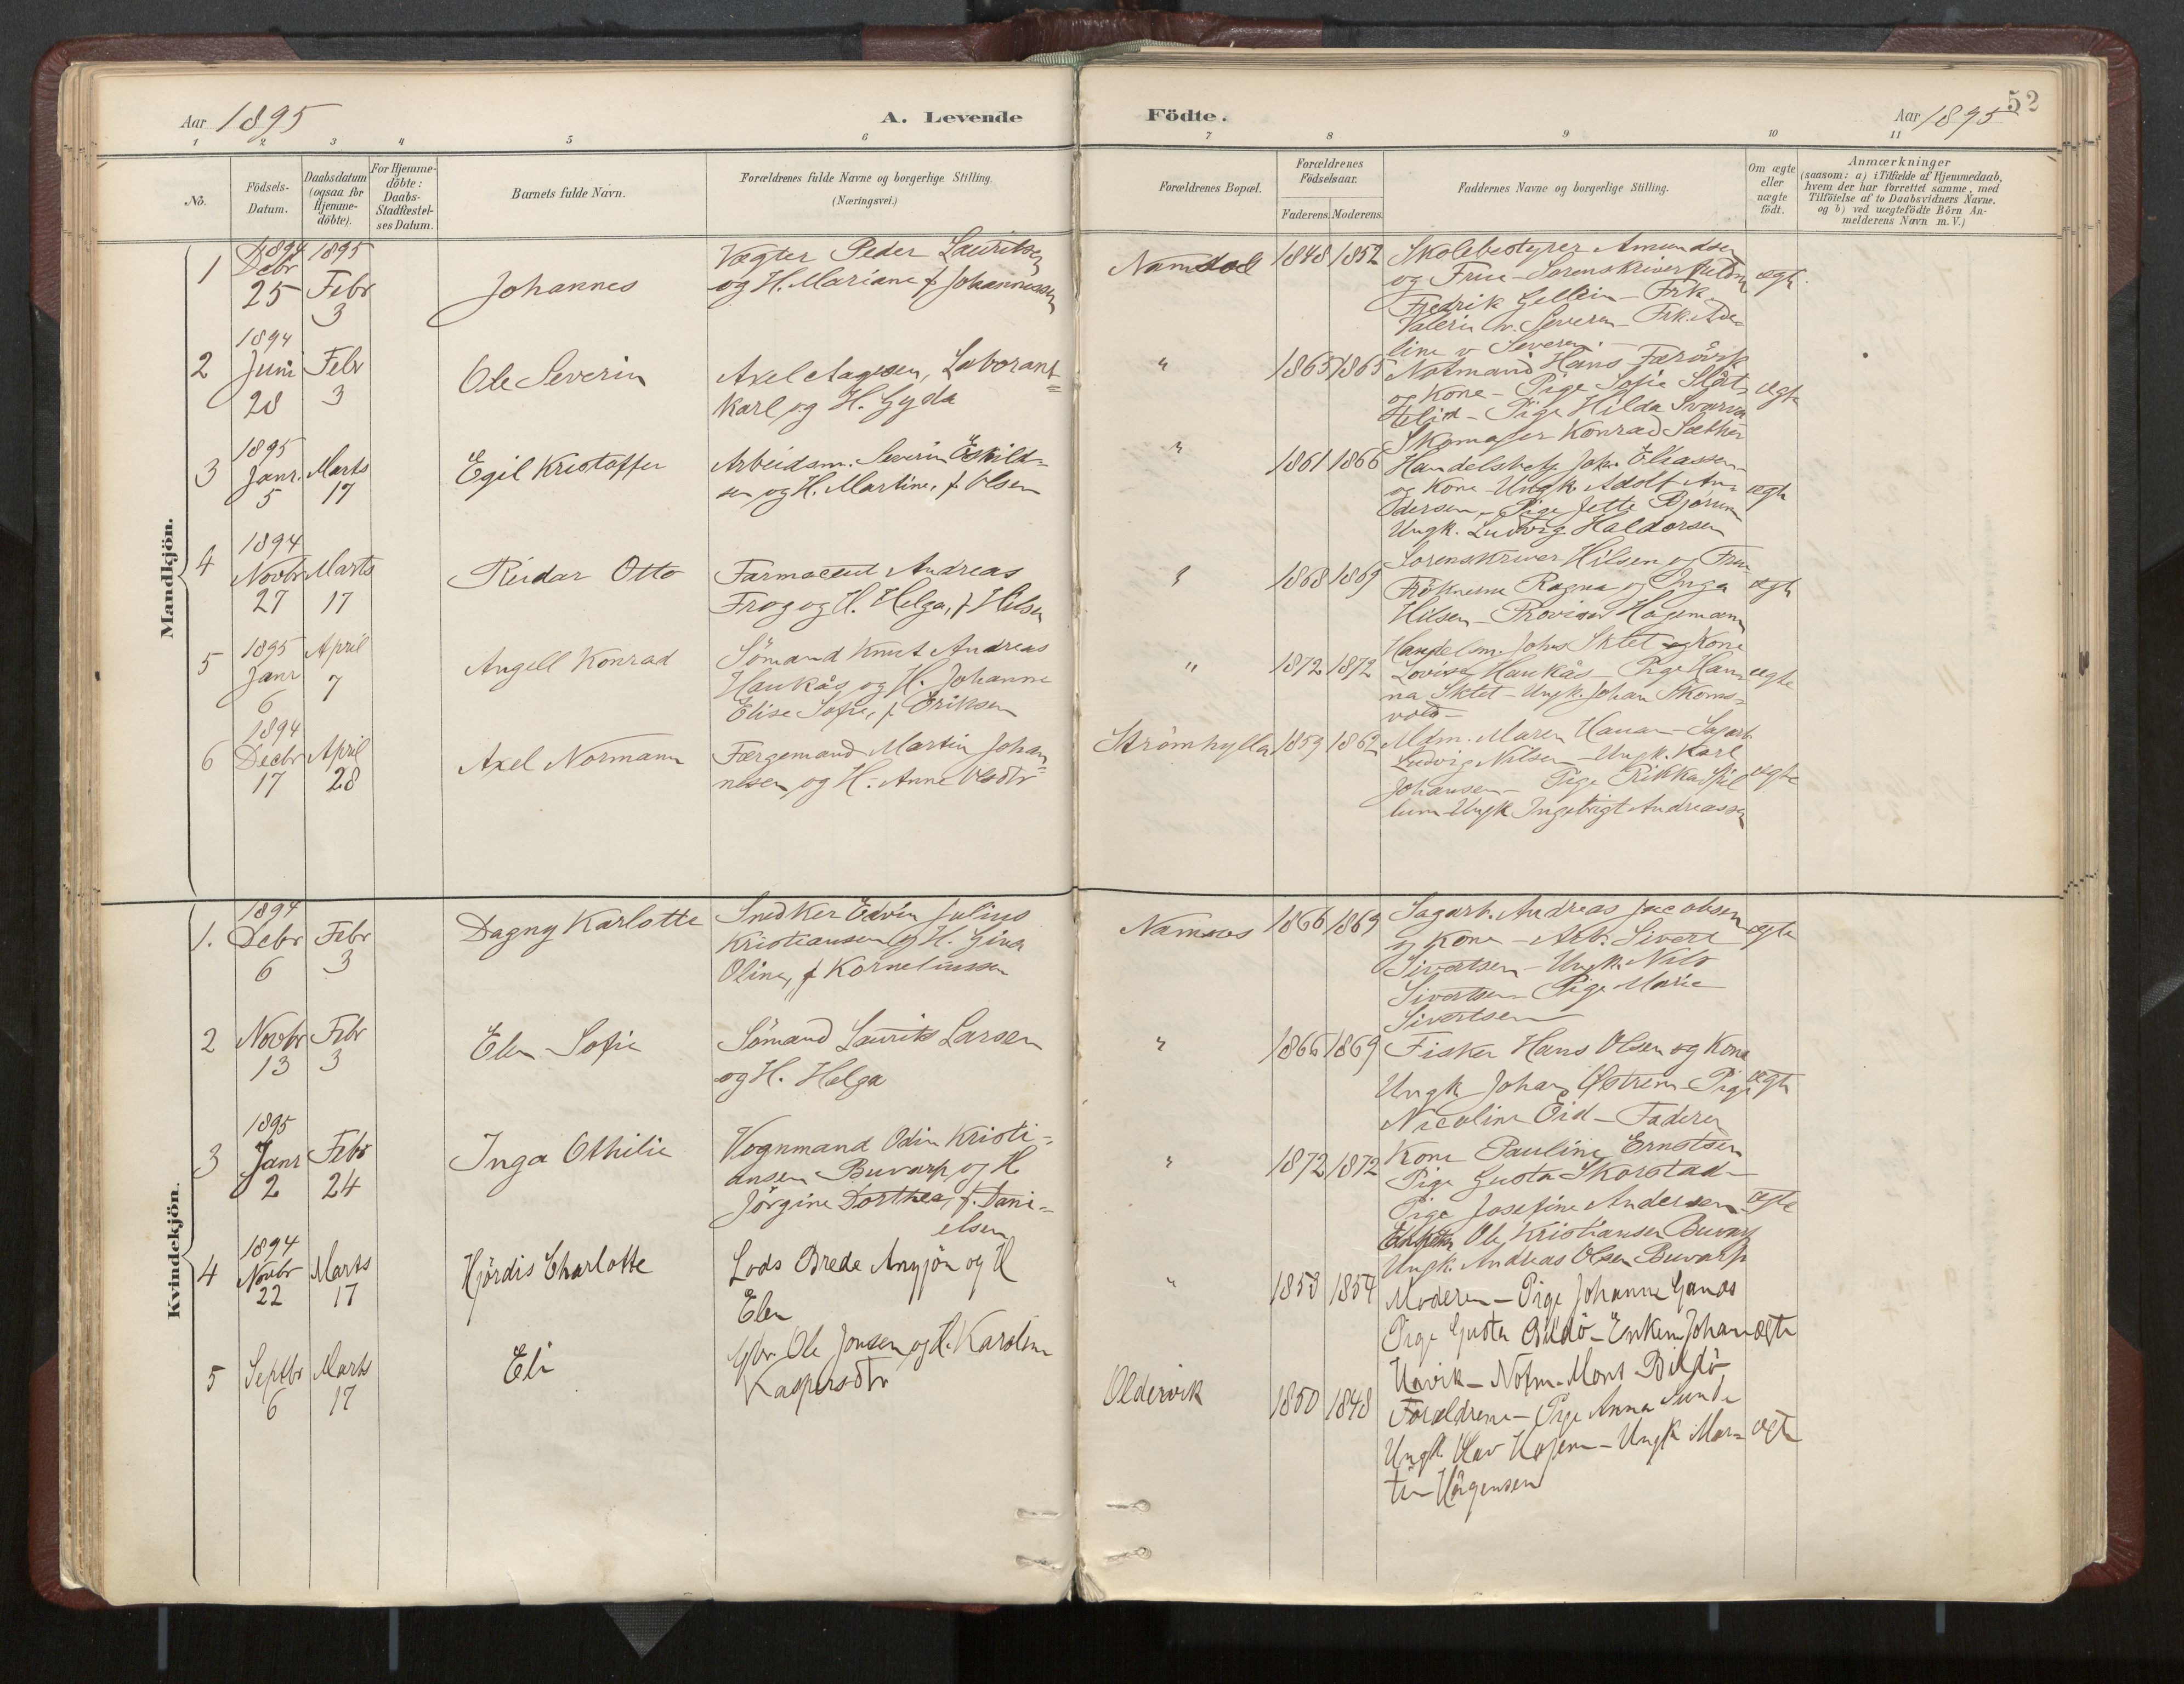 Aar 1895
A. Levende
Födte.
Aar 1895
52
1 2 3 4 5 6 7 8 9 10 11
No.
Födsels-Datum.
Daabsdatum (ogsaa for Hjemme-döbte).
For Hjemme-döbte: Daabs-Stadfæstel-ses Datum.
Barnets fulde Navn.
Forældrenes fulde Navne og borgerlige Stilling. (Næringsvei.)
Forældrenes Bopæl.
Forældrenes Födselsaar.
Faderens. Moderens.
Faddernes Navne og borgerlige Stilling.
Om ægte eller uægte födt.
Anmærkninger
(saasom: a) i Tilfælde af Hjemmedaab, hvem der har forrettet samme, med Tilföielse af to Daabsvidners Navne, og b) ved uægtefödte Börn An-melderens Navn m. V.)
Mandkjön.
1
1894 Decbr 25
1895 Febr 3
Johannes
Vægter Peder Lauritsen
og H. Mariane f Johannessen
1848 1852
Skolebestyrer Amundsen
og Frue - Sorenskriverfuldm
Fredrik Gellein - Frk.
Valerie v. Severen - Frk. Ade-
line v Severen.
ægte
2
1894 Juni 28
Febr 3
Ole Severin
Axel Aagesen, Laborant-
karl og H. Gyda
"
1865 1865
Notmand Hans Færövik
og Kone - Pige Sofie Slåt-
telid - Pige Hilda Svarva
Skomager Konrad Sæther
ægte
3
1895 Janr. 5
Marts 17
Egil Kristoffer
Arbeidsm. Severin Eskild-
sen og H. Martine, f. Olsen
"
1861 1866
Handelsbetj. John Eliassen
og Kone - Ungk. Adolf An-
dersen - Pige Jette Bjørum
Ungk. Ludvig Haldorsen
ægte
4
1894 Novbr 27
Marts 17
Reidar Otto
Farmaceut Andreas
Frog og H. Helga, f Hilsen
"
1868 1869
Sorenskriver Hilsen og Frue
Fröknerne Ragna og Inga
Hilsen - Provisor Hagemann
ægte
5
1895 Janr 6
April 7
Angell Konrad
Sömand Knut Andreas
Haukås og H. Johanne
Elise Sofie, f. Eriksen
"
1872 1872
Handelsm. Johs Sktet og Kone
Lovise Haukås - Pige Han-
na Sktet - Ungk. Johan Skoms-
vold -
ægte
6
1894 Decbr 17
April 28
Axel Normann
Færgemand Martin Johan-
nesen og H. Anne Olsdtr
Strömhylla
1859 1862
Mdm. Maren Hauan - Sagarb
Ludvig Nilsen - Ungk. Karl
Johansen - Pige Rikka Spil
lum - Ungk Ingebrigt Andreassen
ægte
Kvindekjön.
1.
1894 Decbr 6
Febr 3
Dagny Karlotte
Snedker Edvin Julius
Kristiansen og H. Gina
Oline, f Korneliussen
Namsos
1866 1869
Sagarb. Andreas Jacobsen
og Kone - Arb. Sivert
Sivertsen - Ungk. Nils
Sivertsen - Pige Marie
Sivertsen
ægte
2
Novbr 13
Febr 3
Elen Sofie
Sömand Laurits Larsen
og H. Helga
"
1866 1869
Fisker Hans Olsen og Kone
Ungk Johan Østrem - Pige
Nicoline Eid - Faderen
ægte
3
1895 Janr 2
Febr 24
Inga Othilie
Vognmand Odin Kristi-
ansen Buvarp og H
Jörgine Dorthea, f. Dani-
elsen
"
1872 1872
Kone Pauline Ernstsen
Pige Gusta Skorstad
Pige Josefine Andersen
Ole Kristiansen Buvarp
Ungk. Andreas Olsen Buvarp
ægte
4
1894 Novbr 22
Marts 17
Hjördis Charlotte
Lods Brede og H
Elen
"
1853 1854
Moderen - Pige Johanne Ganes
Pige Gusta - Enkem Johan
- Notm. Mons
ægte
5
Septbr 6
Marts 17
Eli
Gbr. Ole Jonsen og H. Karoline
Kaspersdtr
Oldervik
1850 1848
Forældrene - Pige Anna Sunde
Ungk. - Ungk Mar-
tin
ægte